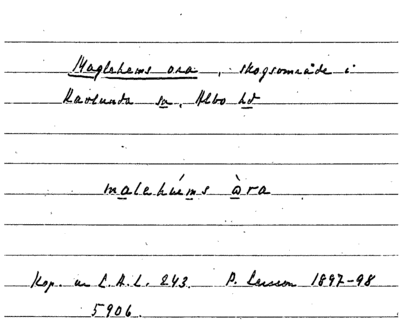 Maglehems ora, skogsområde i
Ravlunda sn, Albo hd
malehúims òra
Kop. ur L.A.L. 243. P. Larsson 1897-98
5906.